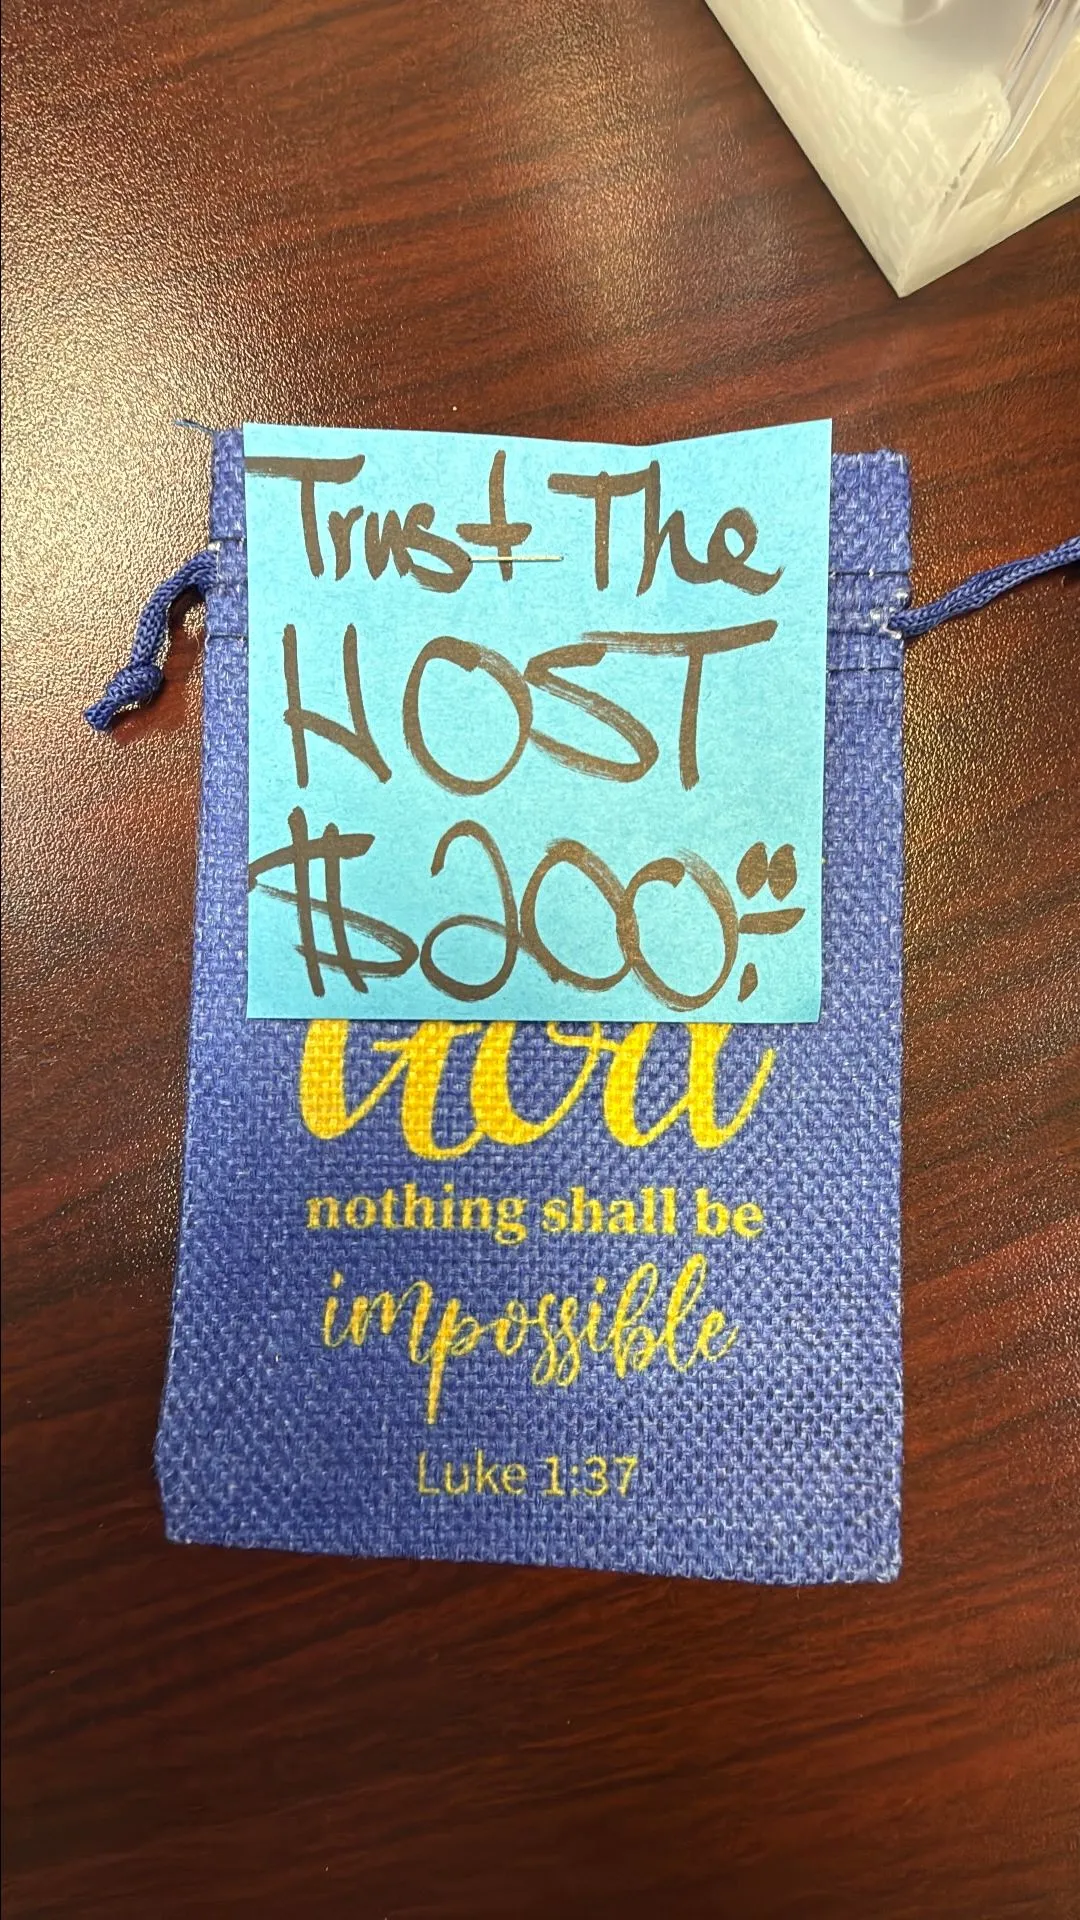 Trust The
HOST
$200.00
God
nothing shall be
impossible
Luke 1:37